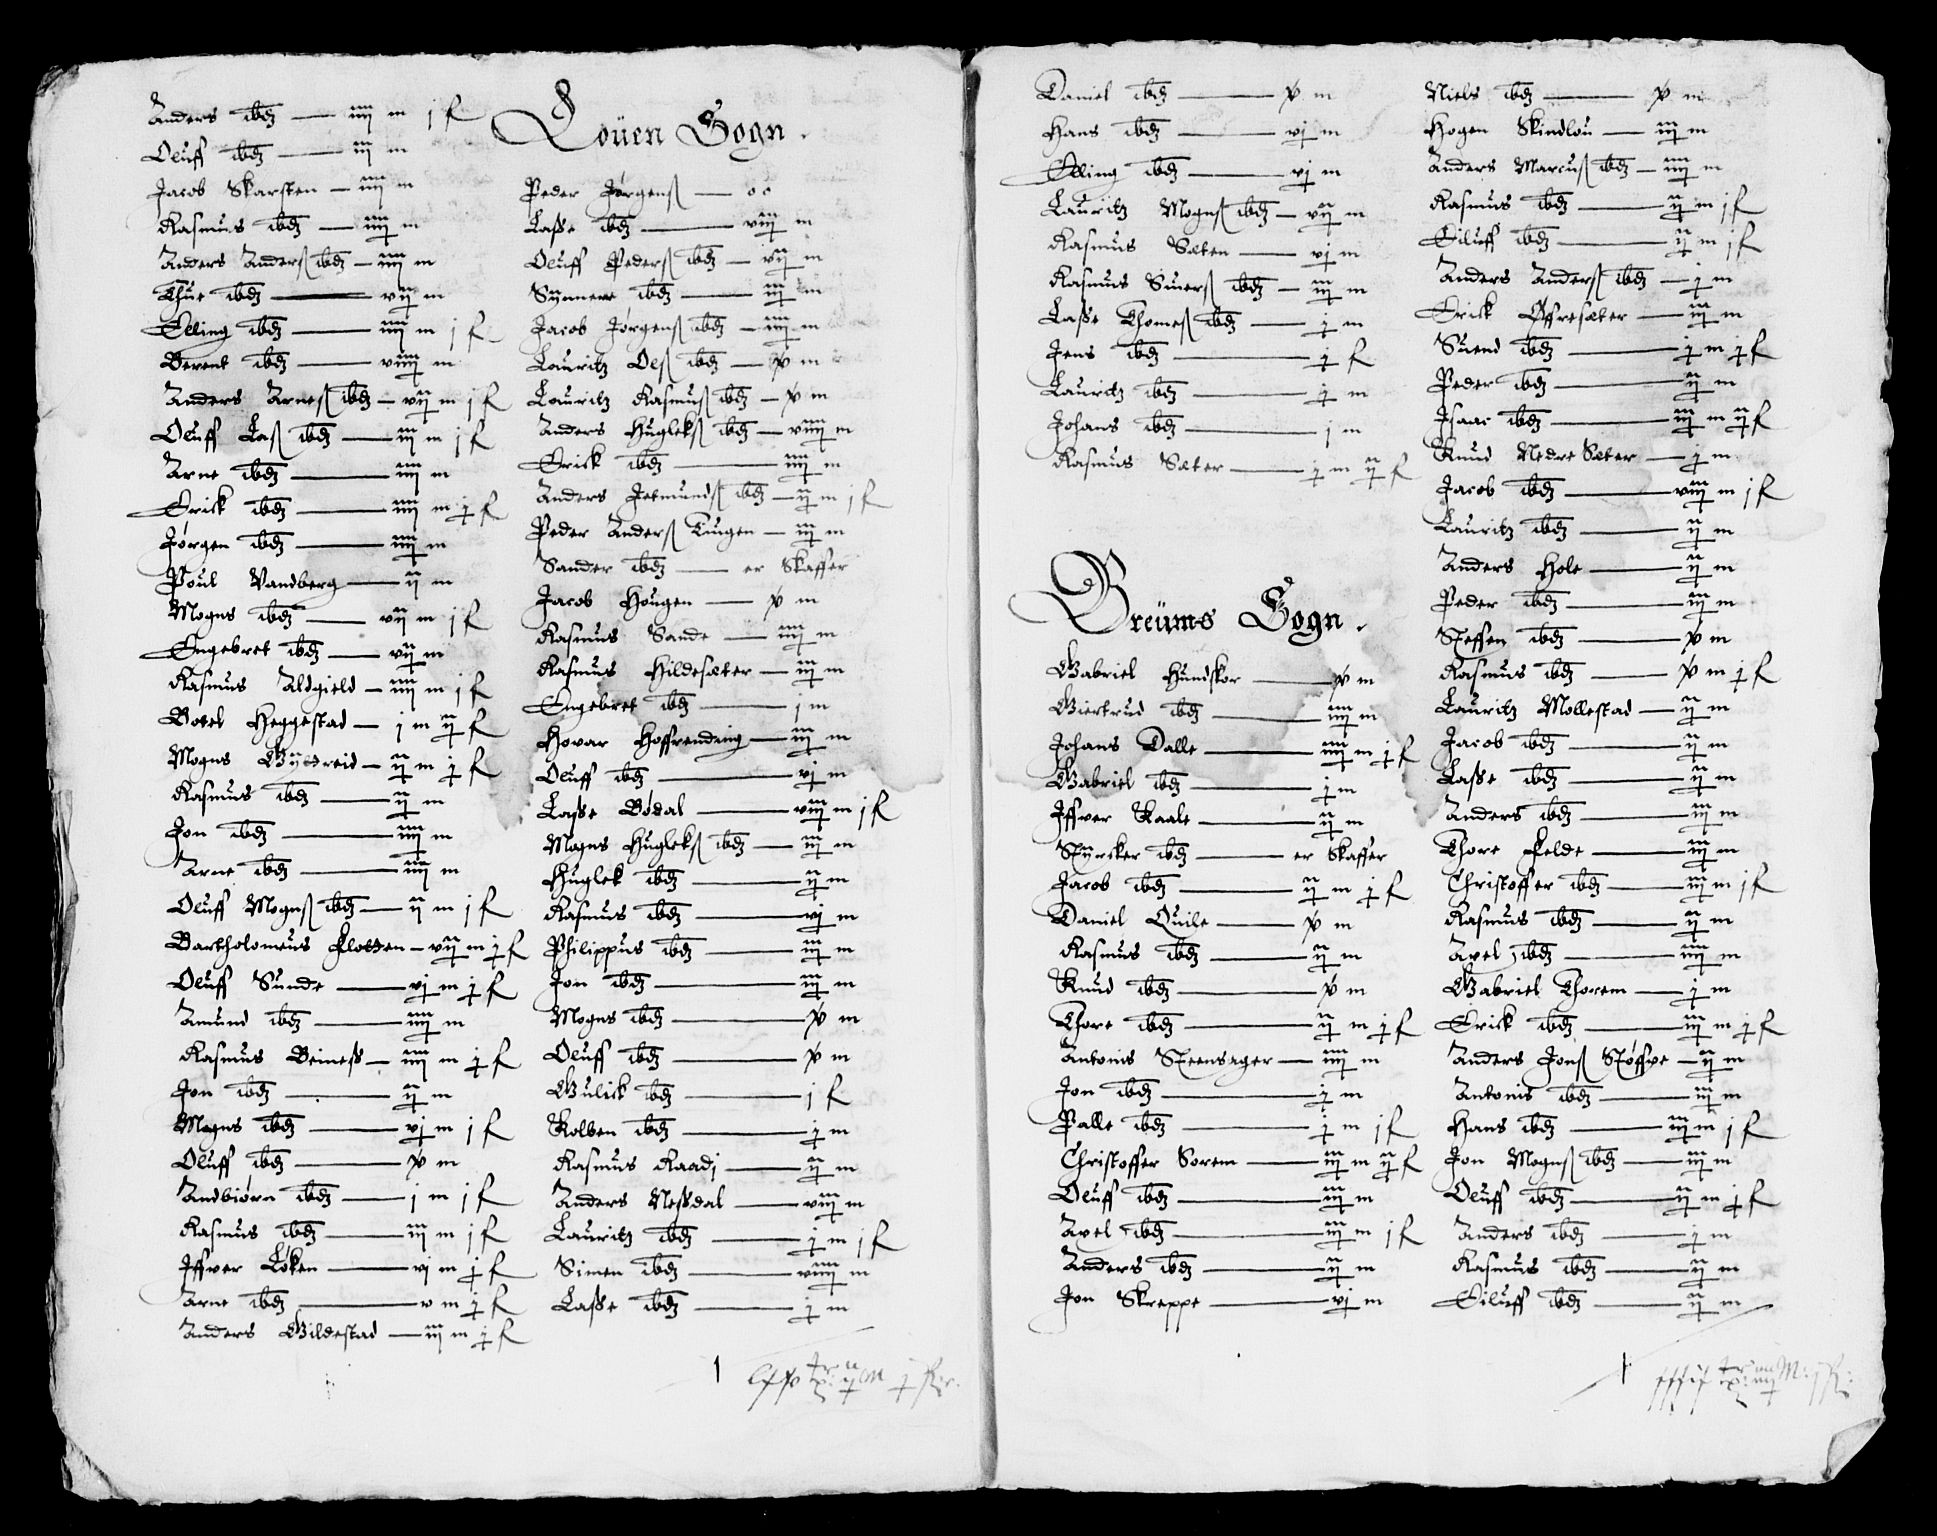 Anders ibd — iiij m j ß
Oluff ibd — iij m
Jacob Skarsten — iiij m
Rasmus ibd — iiij m
Anders Anderß ibd — iiij m
Thue ibd — vij m
Elling ibd — iiij m j ß
Berent ibd — viiij m
Anders Arneß ibd — vij m j ß
Oluff Laß ibd — iij m j ß
Arne ibd — iiij m
Erick ibd — iiij m j ß
Jørgen ibd — iiij m
Poul Vandberg — ij m
Mogns ibd — vij m j ß
Engebret ibd — vij m
Rasmus Aldgield — iiij m j ß
Botel Heggestad — j m ij ß
Mogns — ij m j ß
Rasmus ibd — ij m
Jon ibd — iiij m
Arne ibd — iiij m
Oluff Mognß ibd — ij m j ß
Bartholomeus Flotten — vij m j ß
Oluff Sunde — vj m j ß
Amund ibd — iiij m
Rasmus Beineß — iiij m j ß
Jon ibd — ij m
Mogns ibd — vj m j ß
Oluff ibd — p m
Andbiørn ibd — j m j ß
Rasmus ibd — iij m j ß
Iffver Løken — vj m j ß
Arne ibd — v m j ß
Anders Gildestad — iij m j ß
Loüen Sogn.
Peder Jørgenß — oo
Lasse ibd — viij m
Oluff Pederß ibd — vij m
Synnere ibd — iij m
Jacob Jørgenß ibd — iiij m
Lauritz Oelß ibd — p m
Lauritz Rasmuß ibd — p m
Anders Huglekß ibd — viiij m
Erick ibd — iiij m
Anders Jetmundß ibd — ij m j ß
Peder Anderß Tuigen — iij m
Sander ibd — er Skaffer
Jacob Hougen — p m
Rasmus Sande — iiij m
Rasmus Hildesæter — iij m
Engebret ibd — j m
Hovar Hoffrendning — iij m
Oluff ibd — vj m
Lasse Bødal — viij m j ß
Mogns Huglekß ibd — iij m
Huglek ibd — ij m
Rasmus ibd — vj m
Philippus ibd — iij m
Jon ibd — iij m
Mogns ibd — p m
Oluff ibd — p m
Gulick ibd — j ß
Kolben ibd — j m
Rasmus Raadj — ij m
Anders Nessdal — viij m
Lauritz ibd — j m j ß
Simen ibd — viiij m
Lasse ibd — j m
Daniel ibd — p m
Hans ibd — vj m
Elling ibd — vj m
Lauritz Mognß ibd — vij m
Rasmus Sæten — vj m
Rasmus Siuerß ibd — iij m
Lasse Thomeß ibd — j m
Jens ibd — j ß
Lauritz ibd — j m
Johans ibd — j m
Rasmus Sæter — j m ij ß
Breüms Sogn.
Gabriel Hundskor — p m
Giertrud ibd — iiij m
Johans Dalle — iiij m j ß
Gabriel ibd — j m
Iffver Kaale — ij m
Styrcker ibd — er Skaffer
Jacob ibd — ij m j ß
Daniel Quile — p m
Rasmus ibd — ij m
Knud ibd — p m
Thore ibd — ij m j ß
Antonis Steensager — iiij m
Jon ibd — j m
Palle ibd — j m j ß
Christoffer Sorem — iij m ij ß
Oluff ibd — iij m
Axel ibd — iij m j ß
Anders ibd — ij m
Jon Skreppe — vj m
Niels ibd — p m
Hogen Skindlou — iij m
Anders Marcuß ibd — iiij m
Rasmus ibd — ij m j ß
Eiluff ibd — ij m j ß
Anders Anderß ibd — j m
Erick Øffresæter — iij m
Suend ibd — j m j ß
Peder ibd — ij m
Isaac ibd — iij m ij ß
Knud Nedre Sæter — j m
Jacob ibd — viij m j ß
Lauritz ibd — ij m
Anders Hole — ij m
Peder ibd — iij m
Steffen ibd — p m
Rasmus ibd — p m j ß
Lauritz Mollestad — ij m
Jacob ibd — ij m
Lasse ibd — ij m
Anders ibd — iij m
Thore Felde — iij m
Christoffer ibd — iij m j ß
Rasmus ibd — ij m
Axel ibd — iiij m
Gabriel Thorem — j m
Erick ibd — iij m j ß
Anders Jonß Støffve — ij m
Antonis ibd — iij m
Hans ibd — iij m j ß
Jon Mognß ibd — iij m
Oluff ibd — ij m j ß
Anders ibd — j m
Rasmus ibd — ij m
Eiluff ibd — ij m